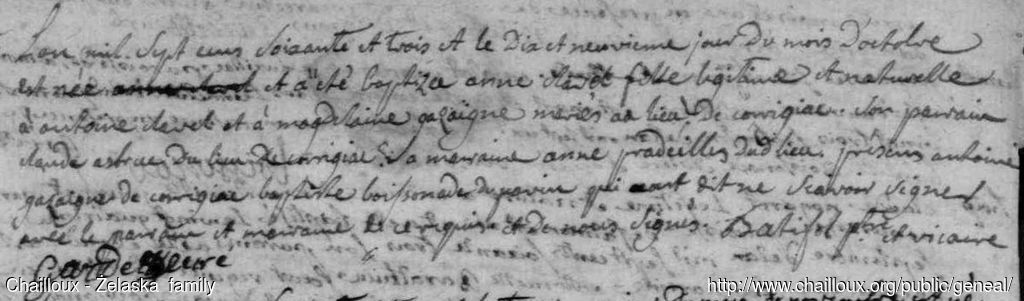 L'an mil sept cens soixante et trois et le dix et neuvieme jour du mois d'octobre
est née et a été baptiza anne clavel fille legitime et naturelle
a antoine clavel et a magdelaine gazaigne mariés au lieu de corrigiac son parrain
claude astruc du lieu de corrigiac sa marraine anne pradeilles dud lieu. presens antoine
gazaigne de corrigiac baptiste boissonade qui ont dit ne scavoir signer
avec le parrain et marraine de ce requis et de nous signés Batifol ptre et vicaire
Chailloux - Żelaska family
http://www.chailloux.org/public/geneal/